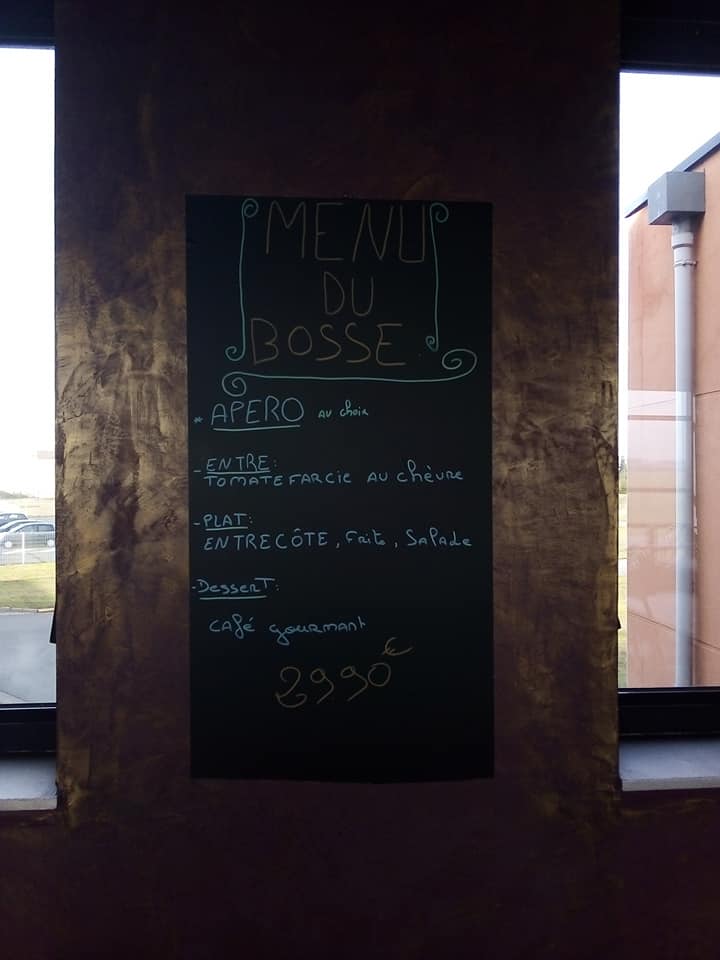 MENU
DU
BOSSE
* APERO AU choix
- ENTRE:
TOMATE FARCIE AU chèvre
- PLAT:
ENTRECÔTE, Frite, Salade
- DesserT:
CAfé gourmant
2990€